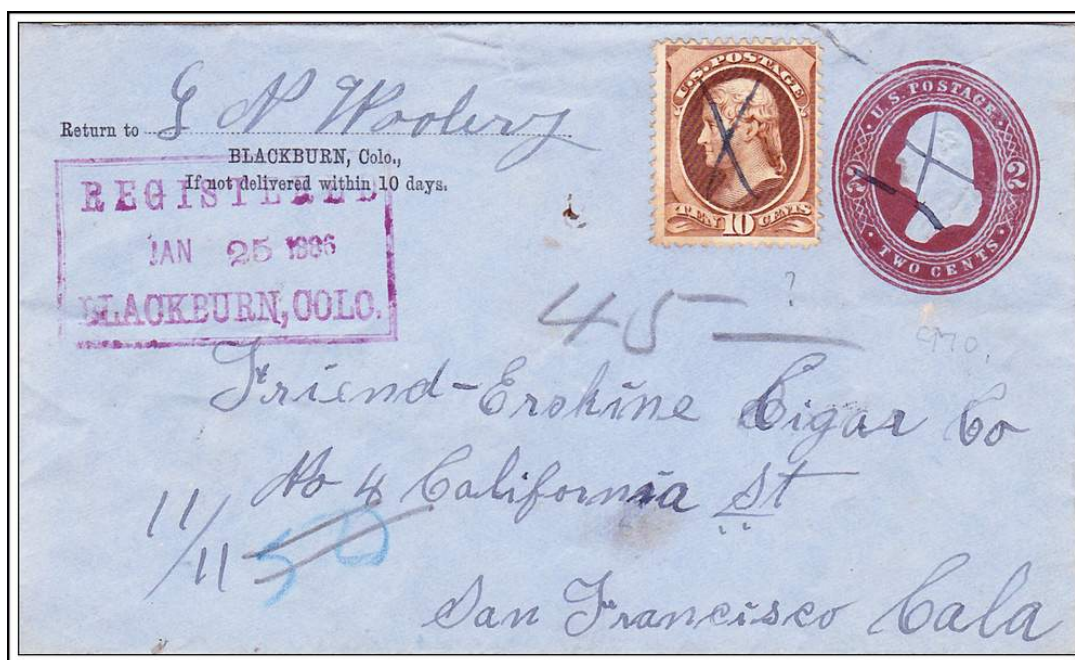 Return to G N Woolery
BLACKBURN, Colo.,
If not delivered within 10 days.
REGISTERED
JAN 25 1886
BLACKBURN, COLO.
U.S. POSTAGE
TEN 10 CENTS
U.S. POSTAGE
2 2
TWO CENTS
45 ?
Friend-Erskine Cigar Co
No 4 California St
11/11
50
San Francisco Cala